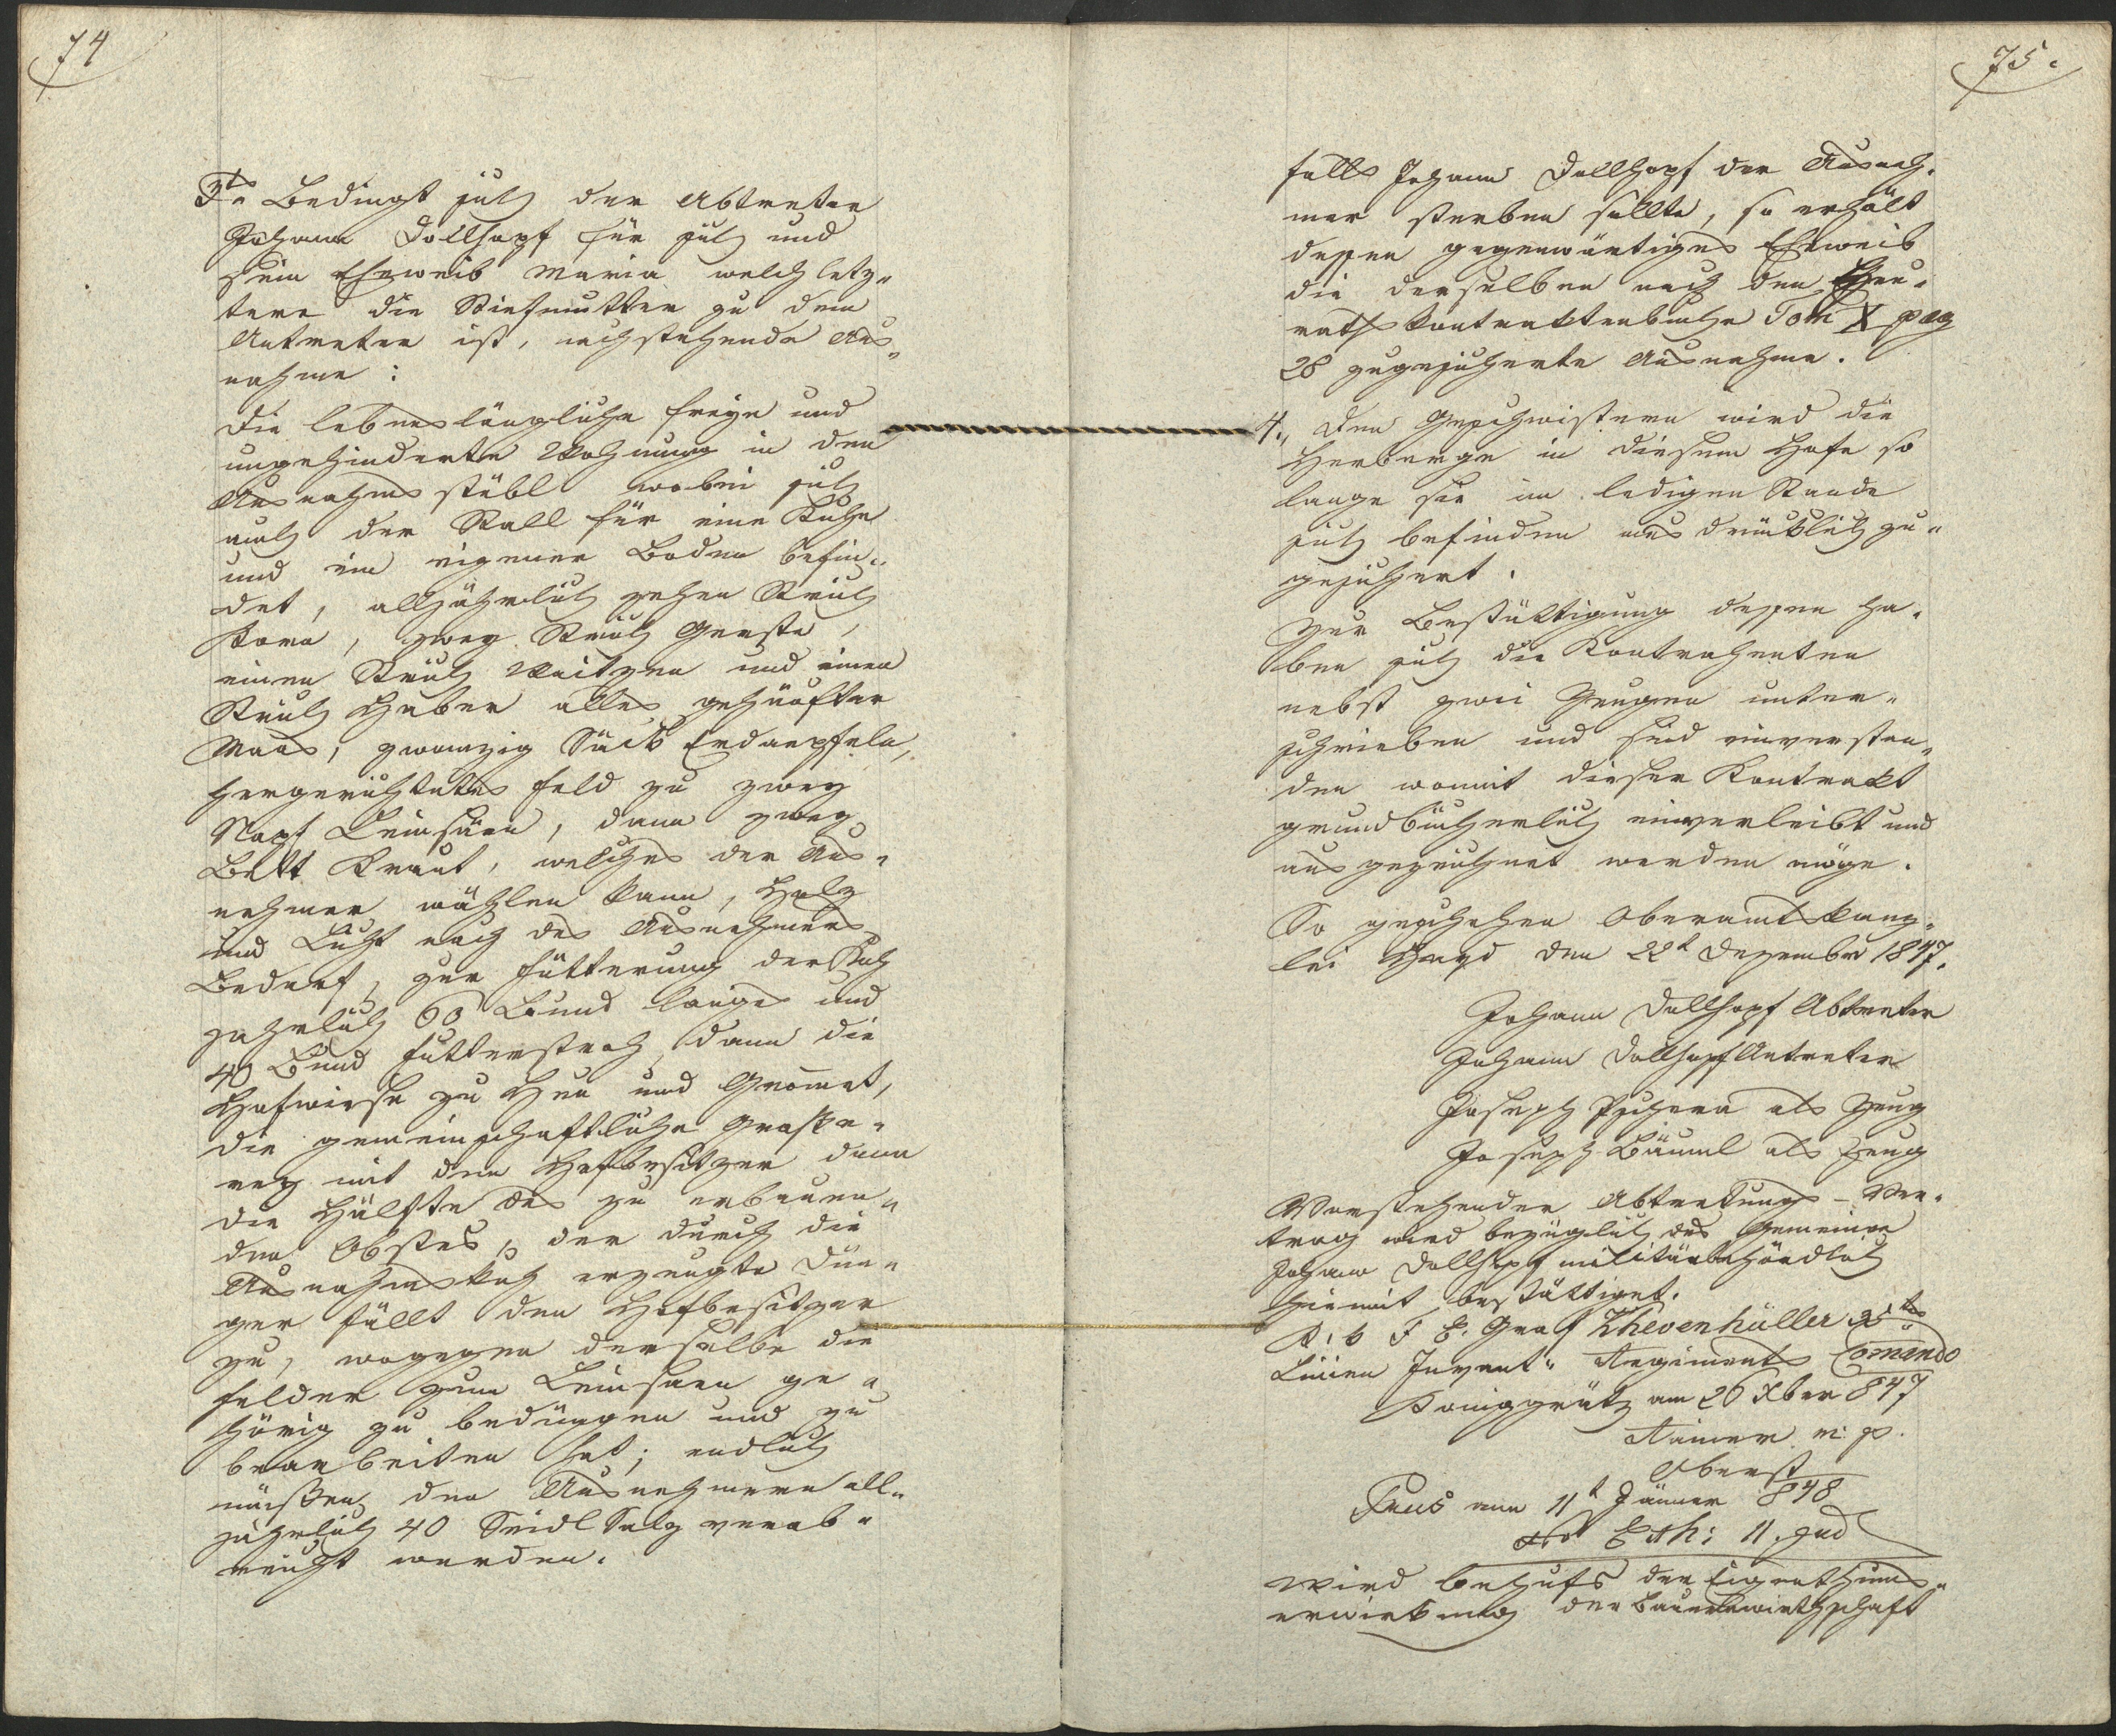 74
3tns Bedingt sich der Abtreter
Johann Dollhopf für sich und
sein Eheweib Maria welch letz„
tere die Stiefmutter zu dem
Antreter ist, nachstehende Aus„
nahme:
Die lebenslängliche freye und
ungehinderte Wohnung in dem
Ausnahmsstübl wobei sich
auch der Stall für eine Kuhe
und ein eigener Boden befin„
det, alljährlich zehen Strich
Korn, zwey Strich Gerste,
einen Strich Waitzen und einen
Strich Haber alles gehäufter
Maas, zwanzig Säck Erdaepfeln,
hergerichtetes Feld zu zwey
Napf Leinsäen, dann zwey
Bett Kraut, welches der Aus„
nehmer wählen kann, Holz
und Licht nach des Ausnehmers
Bedarf, zur Fütterung der Kuh
jahrlich 60 Bund langes und
40 Bund Futterstroh, dann die
Hofwiese zu Heu und Gromet,
die gemeinschaftliche Graße„
rey mit dem Hofbesitzer dann
die Hälfte des zu erbauen„
den Obstes, der durch die
Ausnahmskuh erzeugte Dün„
ger fällt dem Hofbesitzer
zu, wogegen derselbe die
Felder zum Leinsaen ge„
hörig zu bedüngen und zu
bearbeiten hat; endlich
müßen den Ausnehmern all„
jährlich 40 Seidl Salz verab„
reicht werden.
75.
falls Johann Dollhopf der Ausneh„
mer sterben sollte, so erhält
dessen gegenwärtiges Eheweib
die derselben nach dem Heu„
rathskontraktenbuche Tom X pag
28 zugesicherte Ausnahme.
4., Den Geschwistern wird die
Herberge in diesem Hofe so
lange sie im ledigen Stande
sich befinden ausdrücklich zu„
gesichert.
Zur Bestättigung dessen ha„
ben sich die Kontrahenten
nebst zwei Zeugen unter„
schrieben und sind einverstan„
den womit dieser Kontrakt
grundbücherlich einverleibt und
ausgezeichnet werden möge.
So geschehen Oberamtskanz„
lei Hayd den 22t Dezember 1847.
Johann Dollhopf Abtreter
Johann Dollhopf Antreter
Joseph Pschera als Zeug
Joseph Bäuml als Zeug
Vorstehender Abtretungs-Ver„
trag wird bezüglich des Gemeinen
Johann Dollhopf militärbehördlich
hiemit bestättiget.
K: k F E. Graf Khevenhüller 35tes
Linien Infant„ Regiments Comando
Königgrätz am 26 Xber 847
Rainer m: p.
Oberst
Praes am 11t Jänner 848
Eth: 11. jud
Wird behufs der Eigenthums„
erwirkung der Bauernwirthschaft